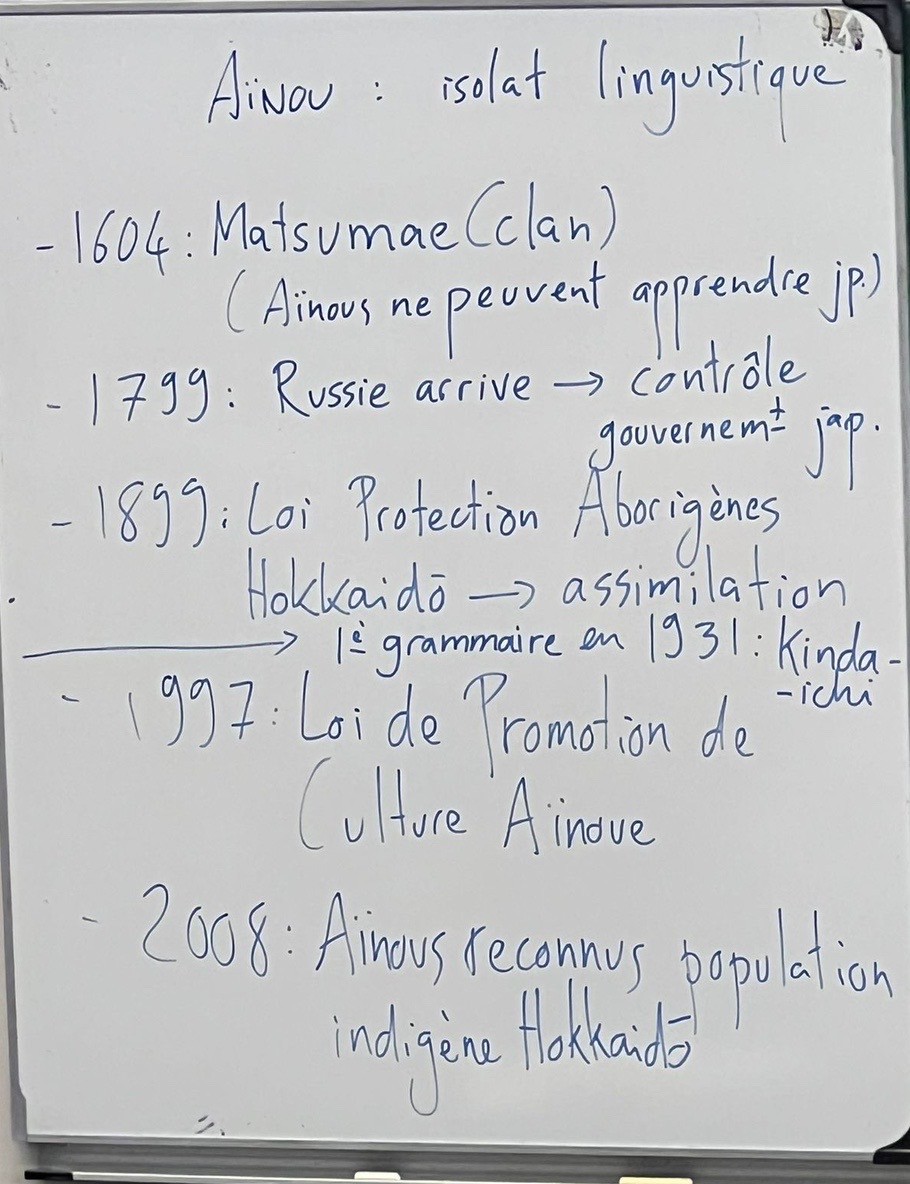 Aïnou : isolat linguistique
- 1604 : Matsumae (clan)
(Aïnous ne peuvent apprendre jp.)
- 1799 : Russie arrive → contrôle
gouvernemt jap.
- 1899 : Loi Protection Aborigènes
Hokkaidō → assimilation
→ 1è grammaire en 1931 : Kinda-
-ichi
- 1997 : Loi de Promotion de
Culture Aïnoue
- 2008 : Aïnous reconnus population
indigène Hokkaidō